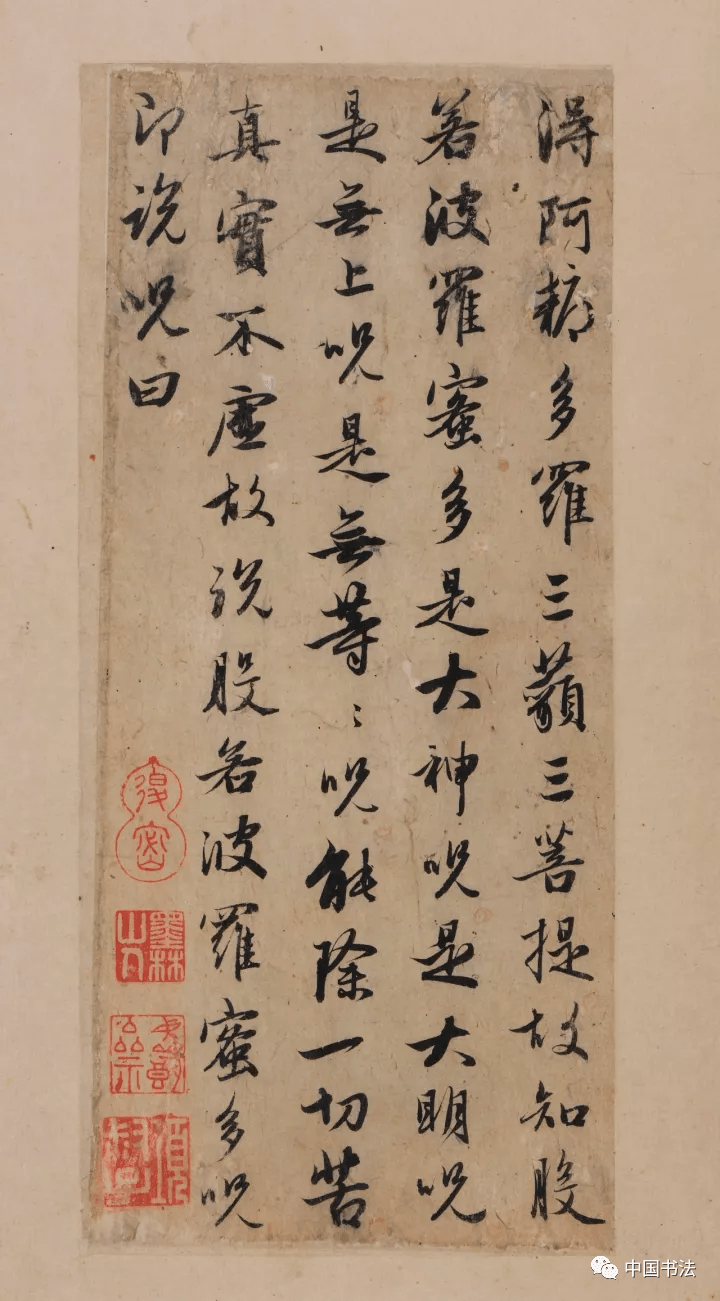 得阿耨多羅三藐三菩提故知般
若波羅蜜多是大神呪是大明呪
是無上呪是無等〻呪能除一切苦
真實不虛故說般若波羅蜜多呪
即說呪曰
退密
墨林山人
中国书法